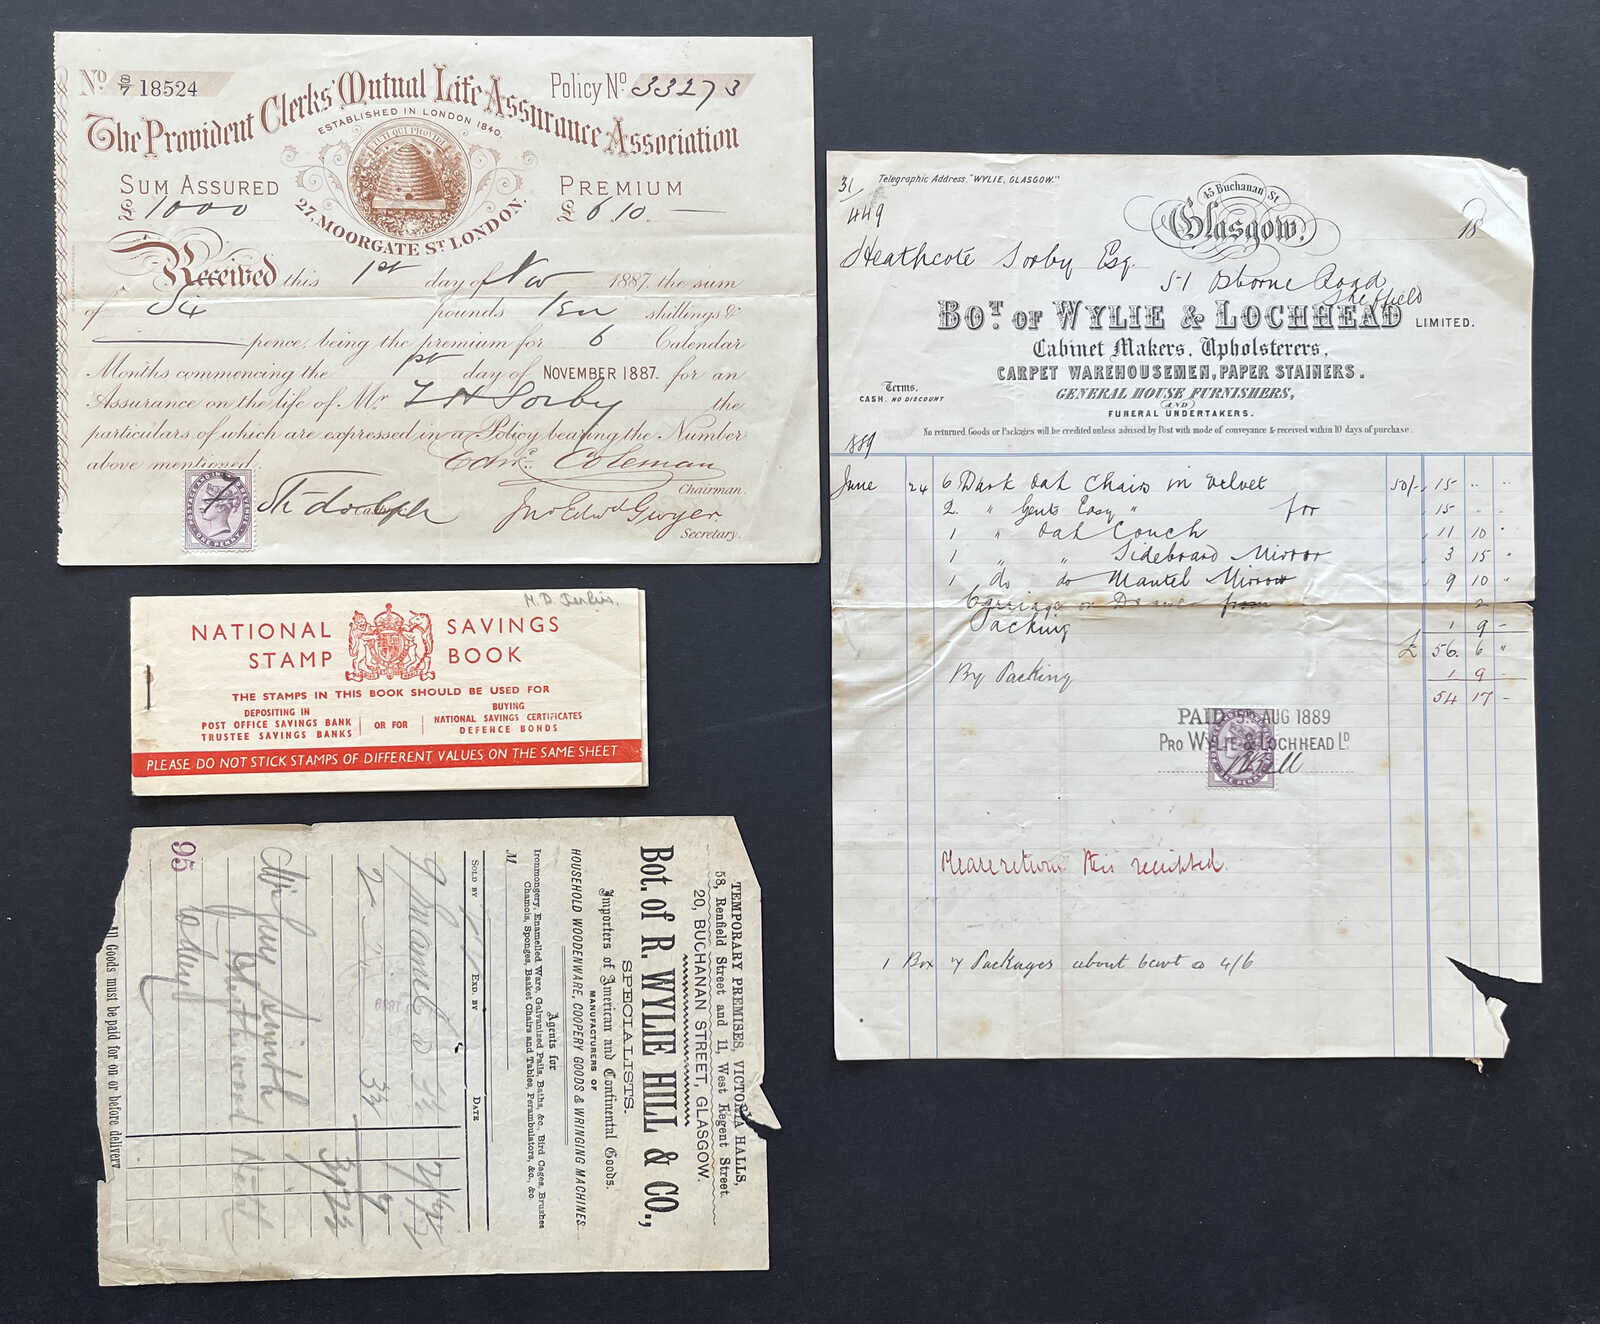 No 8/7 18524
Policy No 33273
The Provident Clerks' Mutual Life Assurance Association
ESTABLISHED IN LONDON 1840.
SUM ASSURED
£ 1000
PREMIUM
£ 6.10.—
27, MOORGATE ST LONDON.
Received this 1st day of Nov 1887. the sum
of Six pounds Ten shillings &
— pence, being the premium for 6 Calendar
Months commencing the 1st day of NOVEMBER 1887. for an
Assurance on the life of Mr T H Sorby the
particulars of which are expressed in a Policy bearing the Number
above mentioned.
Edwd. Coleman
Chairman.
Jno Edwd Gwyer
Secretary.
ONE PENNY
H. D. Jenkins.
NATIONAL SAVINGS
STAMP BOOK
THE STAMPS IN THIS BOOK SHOULD BE USED FOR
DEPOSITING IN
POST OFFICE SAVINGS BANK
TRUSTEE SAVINGS BANKS
OR FOR
BUYING
NATIONAL SAVINGS CERTIFICATES
DEFENCE BONDS
PLEASE DO NOT STICK STAMPS OF DIFFERENT VALUES ON THE SAME SHEET
TEMPORARY PREMISES, VICTORIA HALLS,
58, Renfield Street and 11, West Regent Street
20, BUCHANAN STREET, GLASGOW.
Bot. of R. WYLIE HILL & CO.,
SPECIALISTS.
Importers of American and Continental Goods.
MANUFACTURERS OF
HOUSEHOLD WOODENWARE, COOPERY GOODS & WRINGING MACHINES.
Agents for
Ironmongery, Enamelled Ware, Galvanized Pails, Baths, &c., Bird Cages, Brushes
Chamois, Sponges, Basket Chairs and Tables, Perambulators, &c., &c.
M
SOLD BY
EXD. BY
DATE
95
All Goods must be paid for on or before delivery.
31
Telegraphic Address, "WYLIE, GLASGOW."
45 Buchanan St
Glasgow,
18
449
Heathcote Sorby Esq.
51 Osborne Road
Sheffield
BOT. OF WYLIE & LOCHHEAD LIMITED.
Cabinet Makers, Upholsterers,
CARPET WAREHOUSEMEN, PAPER STAINERS.
GENERAL HOUSE FURNISHERS,
AND
FUNERAL UNDERTAKERS.
Terms.
CASH. NO DISCOUNT
No returned Goods or Packages will be credited unless advised by Post with mode of conveyance & received within 10 days of purchase.
1889
June 24 6 Dark Oak Chairs in Velvet 50/- 15 " "
2 " Gents Easy " for 15 " "
1 " Oak Couch 11 10 "
1 " " Sideboard Mirror 3 15 "
1 do do Mantel Mirror 9 10 "
Packing 1 9 -
£ 56. 6 "
By Packing 1 9 -
54 17 -
PAID 5 AUG 1889
PRO WYLIE & LOCHHEAD LD.
Please return this receipted.
1 Box & Packages about 6cwt @ 4/6